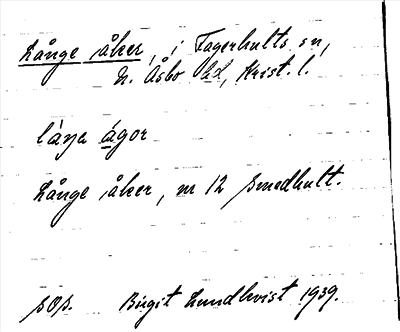 Långe åker, i Fagerhults sn,
N. Åsbo hd, Krist. l.
låŋa ågor
Långe åker, nr 12 Smedhult.
sOp. Birgit Lundkvist 1939.